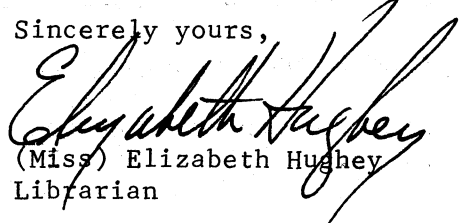 Sincerely yours,
Elizabeth Hughey
(Miss) Elizabeth Hughey
Librarian